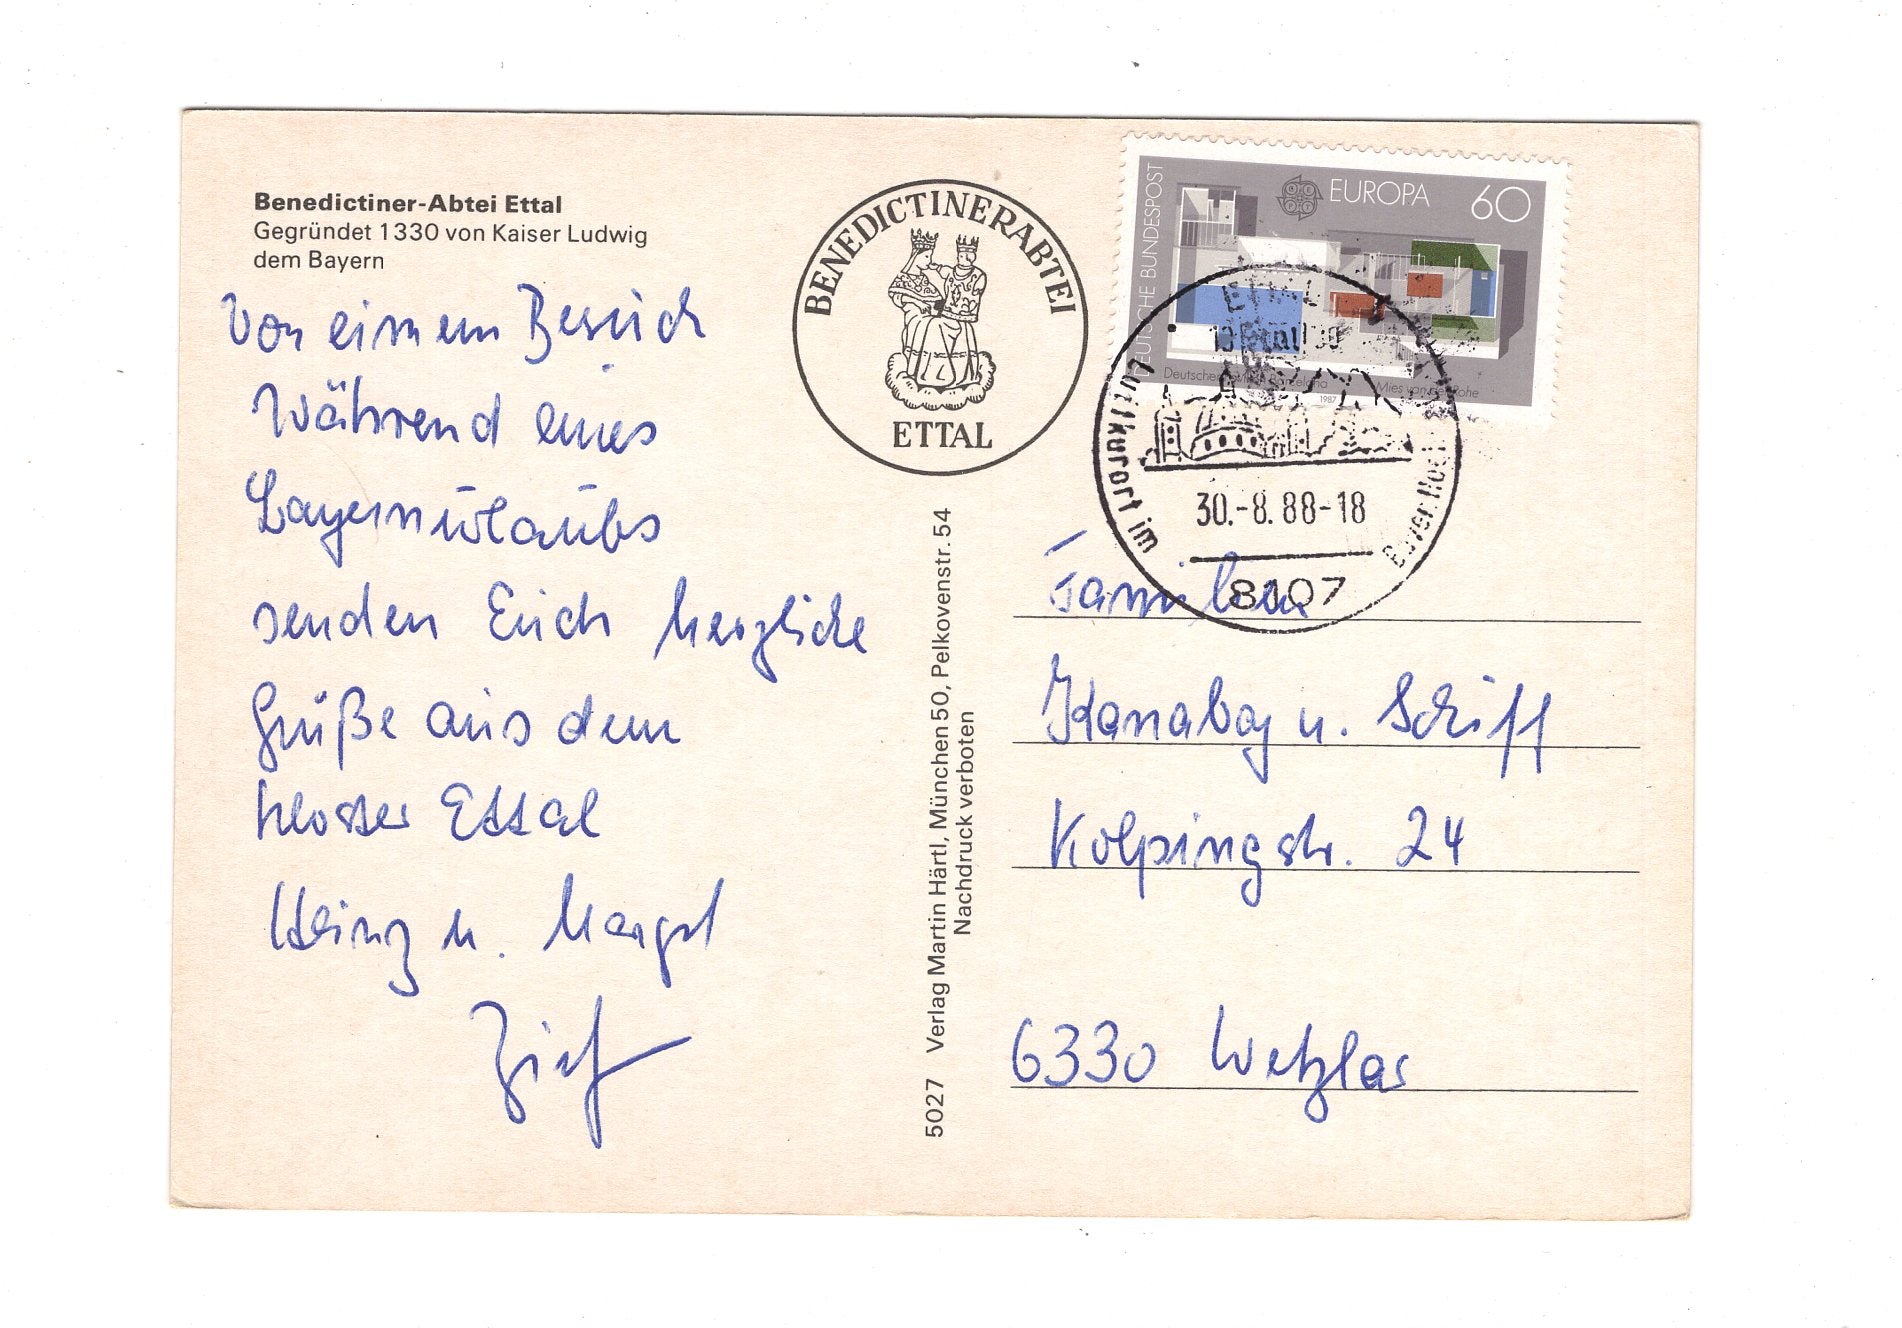 Benedictiner-Abtei Ettal
Gegründet 1330 von Kaiser Ludwig
dem Bayern
Von einem Besuch
Während eines
Bayernurlaubs
senden Euch herzliche
Grüße aus dem
Kloster Ettal
Heinz u. Margot
BENEDICTINERABTEI
ETTAL
5027 Verlag Martin Härtl, München 50, Pelkovenstr. 54
Nachdruck verboten
DEUTSCHE BUNDESPOST
EUROPA 60
Deutscher Barcelona Mies van der Rohe
1987
ETTAL
Luftkurort im
30.-8.88-18
8107
Familien
Kanaboy u. Schiff
Kolpingstr. 24
6330 Wetzlar